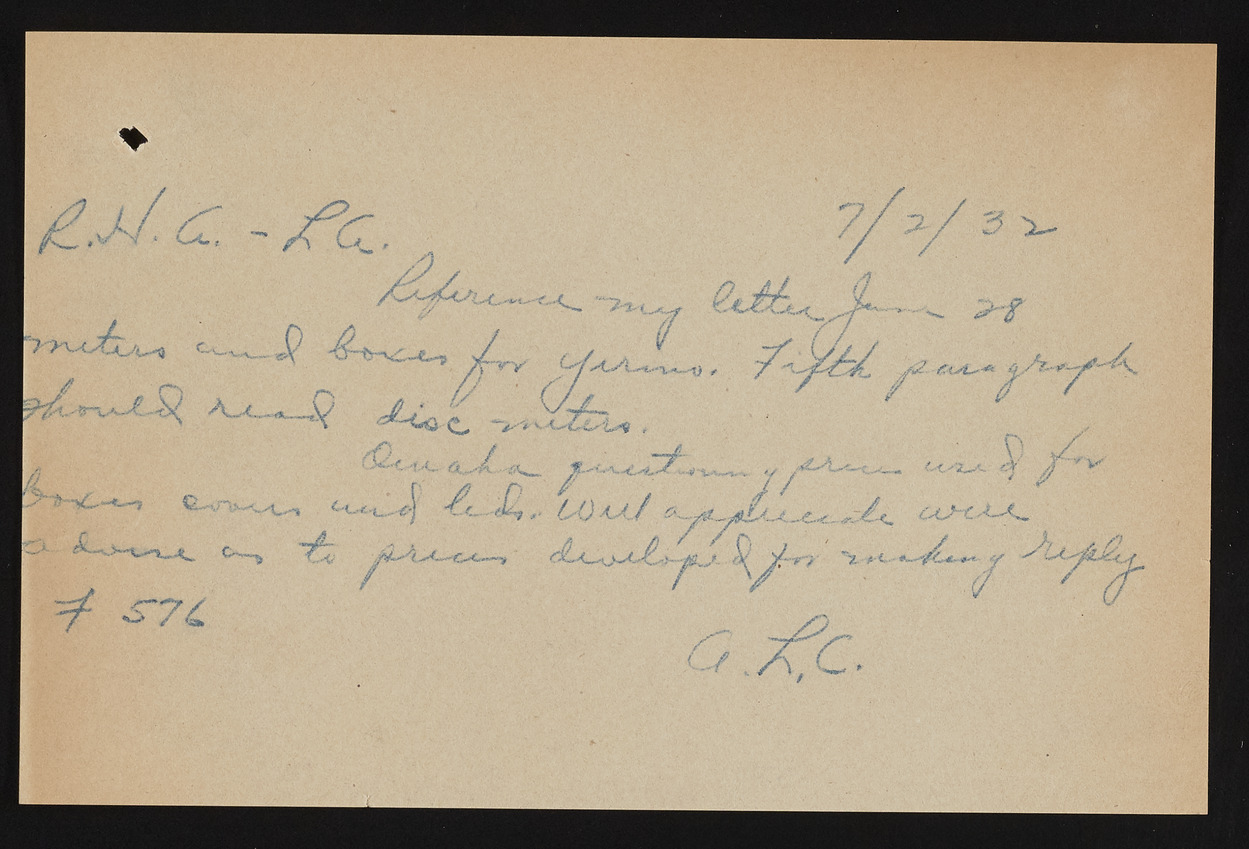 R.H.A. - L A.
7/2/32
Reference my letter June 28
meters and boxes for Yermo. Fifth paragraph
should read disc meters.
Omaha questioning prices used for
boxes covers and lids. Will appreciate wire
advise as to prices developed for making reply
F 576
A.L.C.